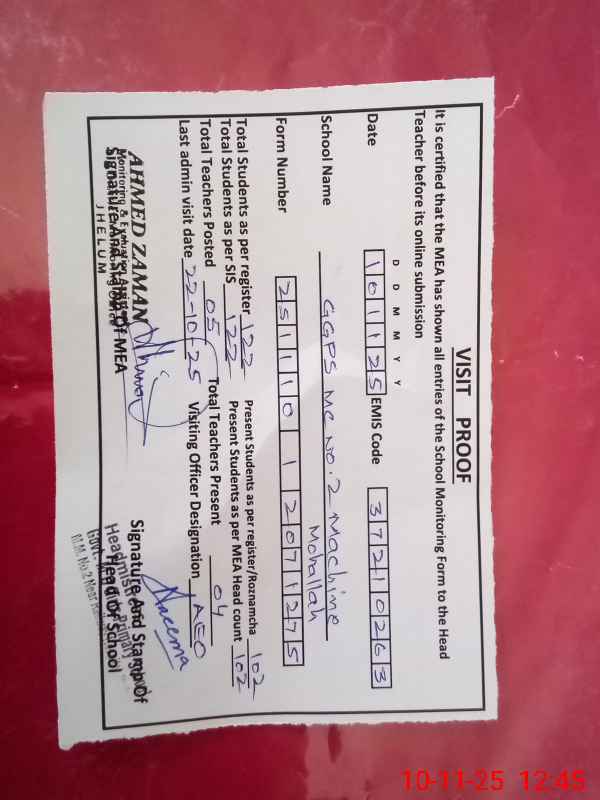 VISIT PROOF
It is certified that the MEA has shown all entries of the School Monitoring Form to the Head
Teacher before its online submission
D D M M Y Y
Date 101125 EMIS Code 37210263
School Name GGPS MC NO.2 Machine
Mohallah
Form Number 25111012071275
Total Students as per register 122 Present Students as per register/Roznamcha 102
Total Students as per SIS 122 Present Students as per MEA Head count 102
Total Teachers Posted 05 Total Teachers Present 04
Last admin visit date 22-10-25 Visiting Officer Designation AEO
AHMED ZAMAN
Monitoring & Evaluation
Signature And Stamp Of MEA
JHELUM
Naeema
Signature And Stamp Of
Head Of School
Headmistress
Govt. Primary
M.M. No.2 Near
10-11-25 12:45